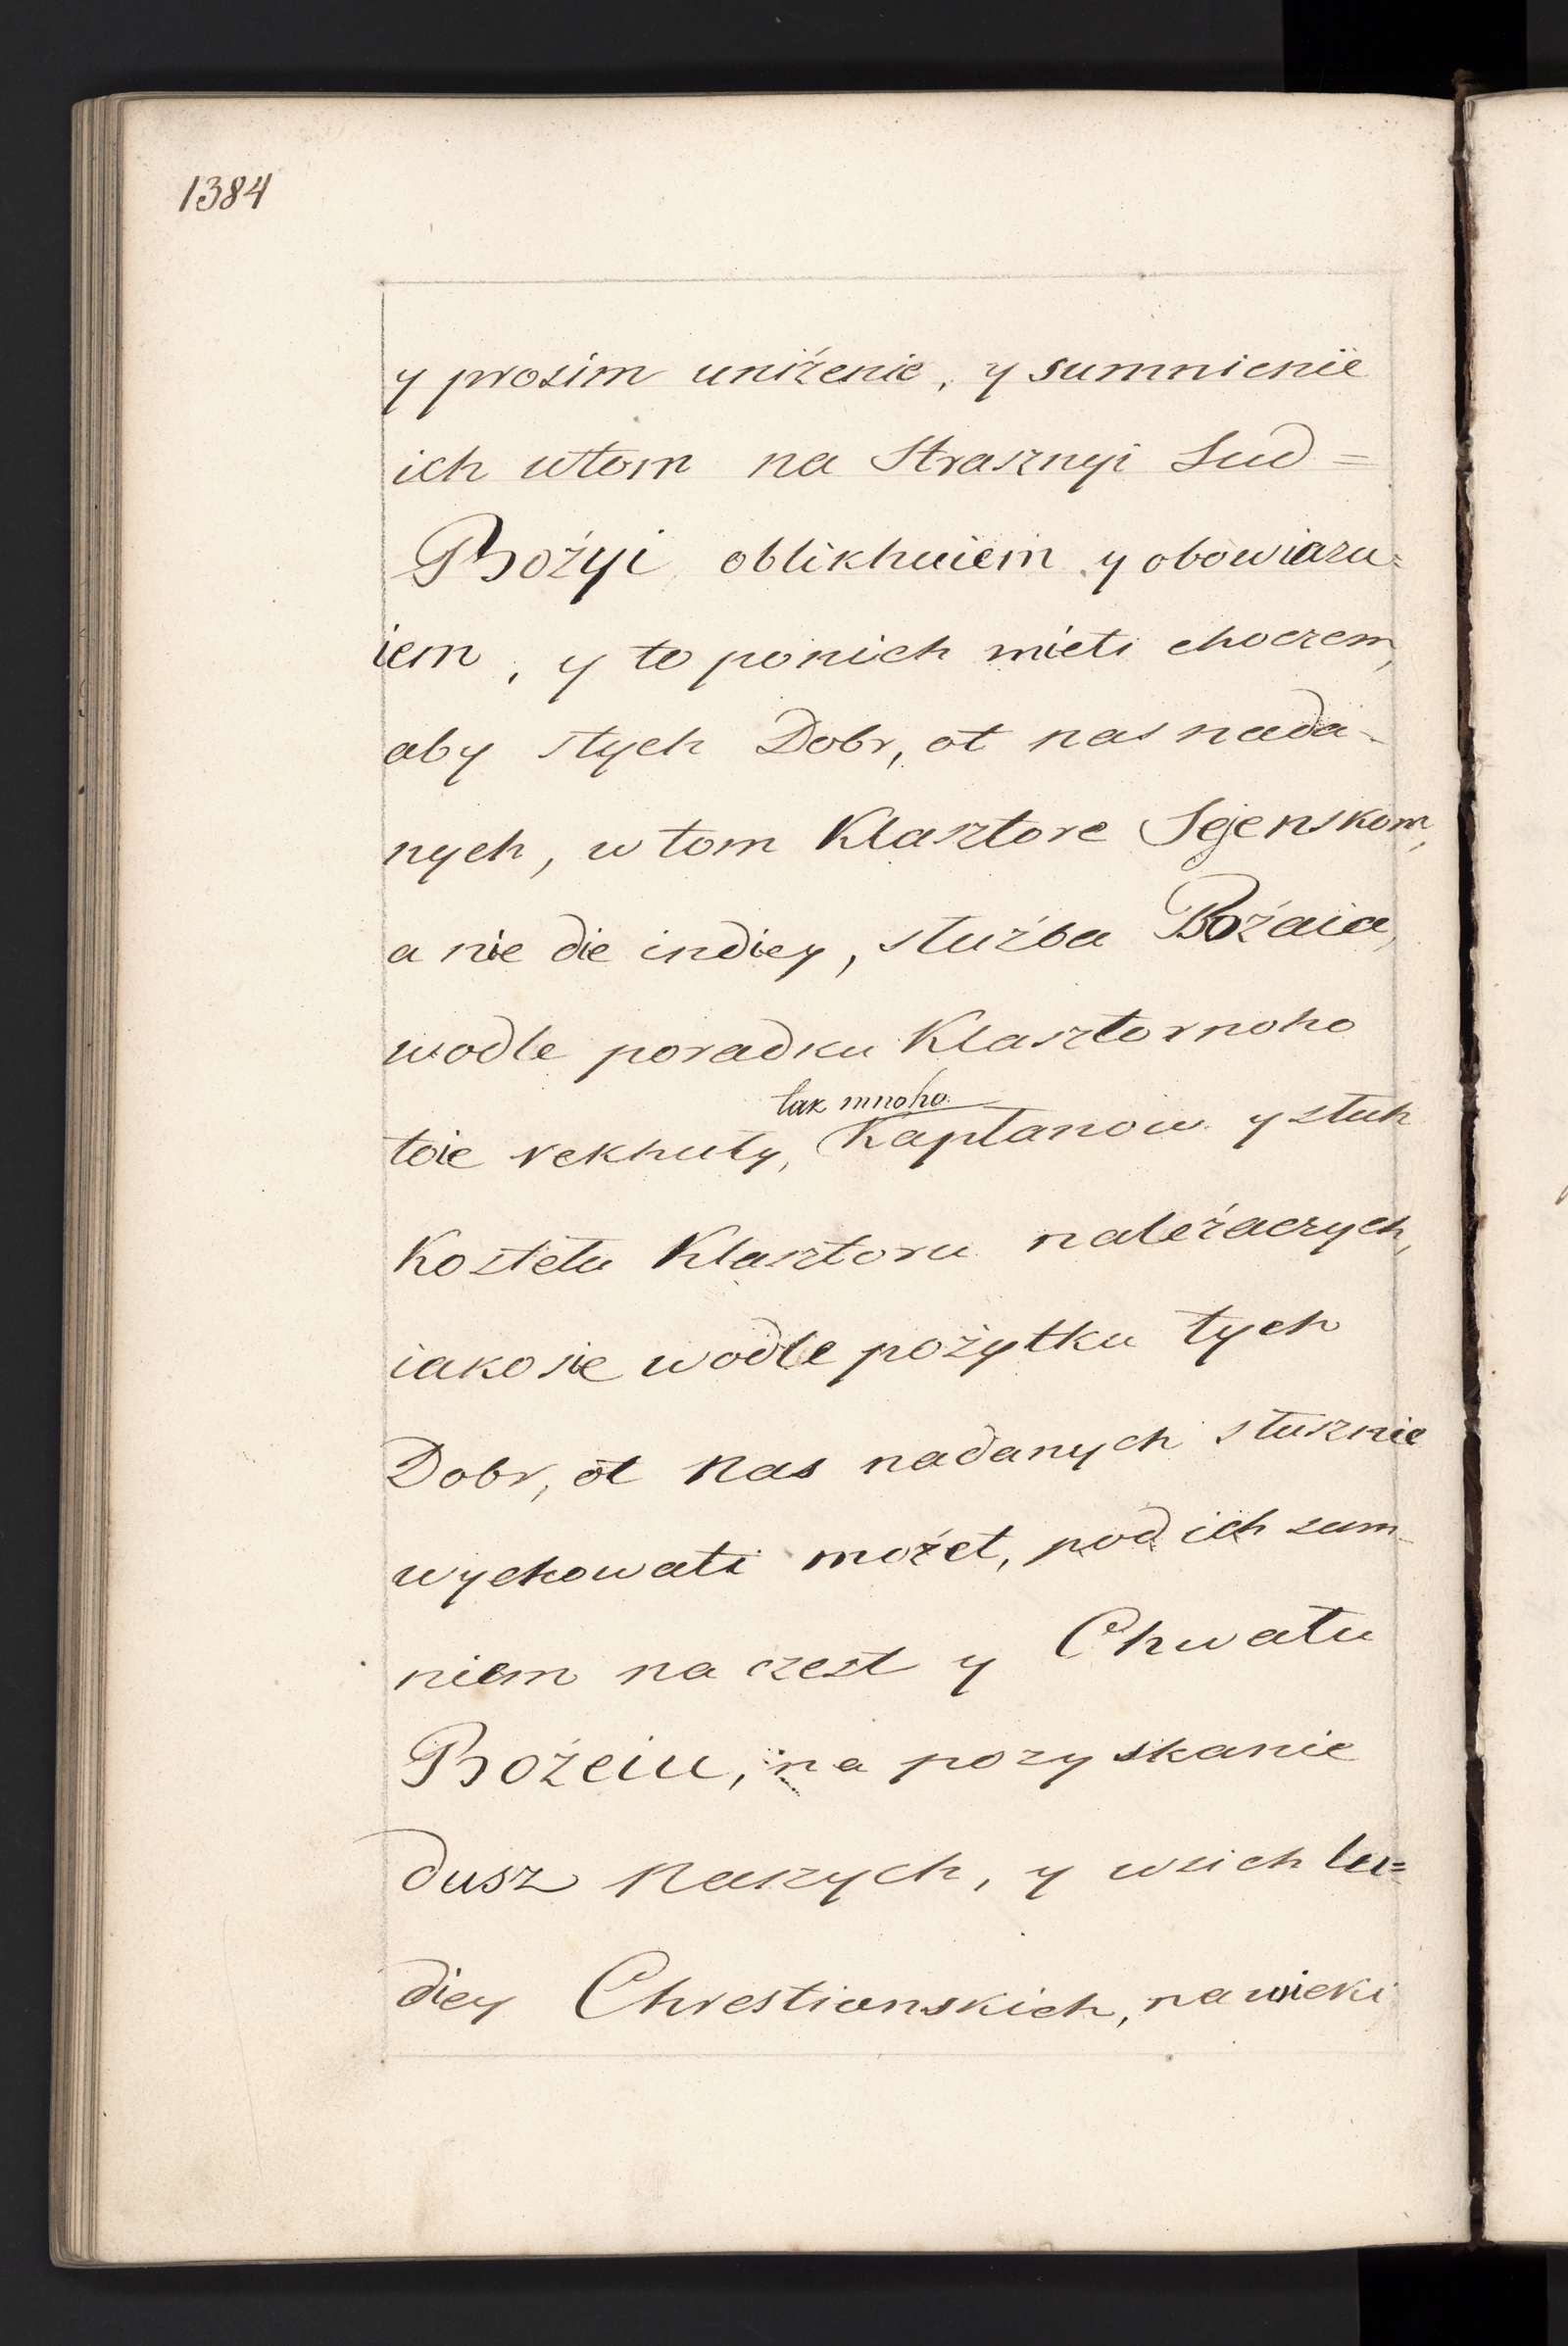 1384
y prosim uniżenie, y sumnienie
ich wtom na Strasznyi Sud=
Bożyi oblikhuiem y obowiazu=
iem, y to ponich mieti choczem,
aby stych Dobr, ot nas nada-
nych, w tom Klasztore Sejenskom,
a nie die indiey, służba Bożaia,
wodle poradku Klasztornoho
tak mnoho
toie rekhuły, Kapłanow y słuh
Kostełu Klasztoru należaczych,
iako sie wodle pożytku tych
Dobr, ot nas nadanych słusznie
wychowati możet, pod ich sum-
niem na czest y Chwału
Bożeiu, na pozyskanie
dusz naszych, y wsich lu=
diey Chrestianskich, na wieki